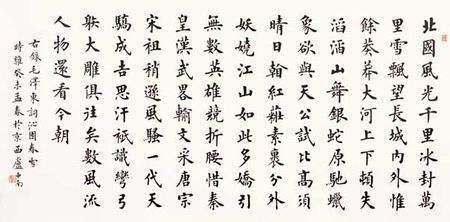 北國風光千里冰封萬
里雪飄望長城內外惟
餘莽莽大河上下頓失
滔滔山舞銀蛇原馳蠟
象欲與天公試比高須
晴日看紅裝素裹分外
妖嬈江山如此多嬌引
無數英雄競折腰惜秦
皇漢武略輸文采唐宗
宋祖稍遜風騷一代天
驕成吉思汗祇識彎弓
躲大雕俱往矣數風流
人物還看今朝
右錄毛澤東詞沁園春雪
時維癸未孟春於京西盧中南